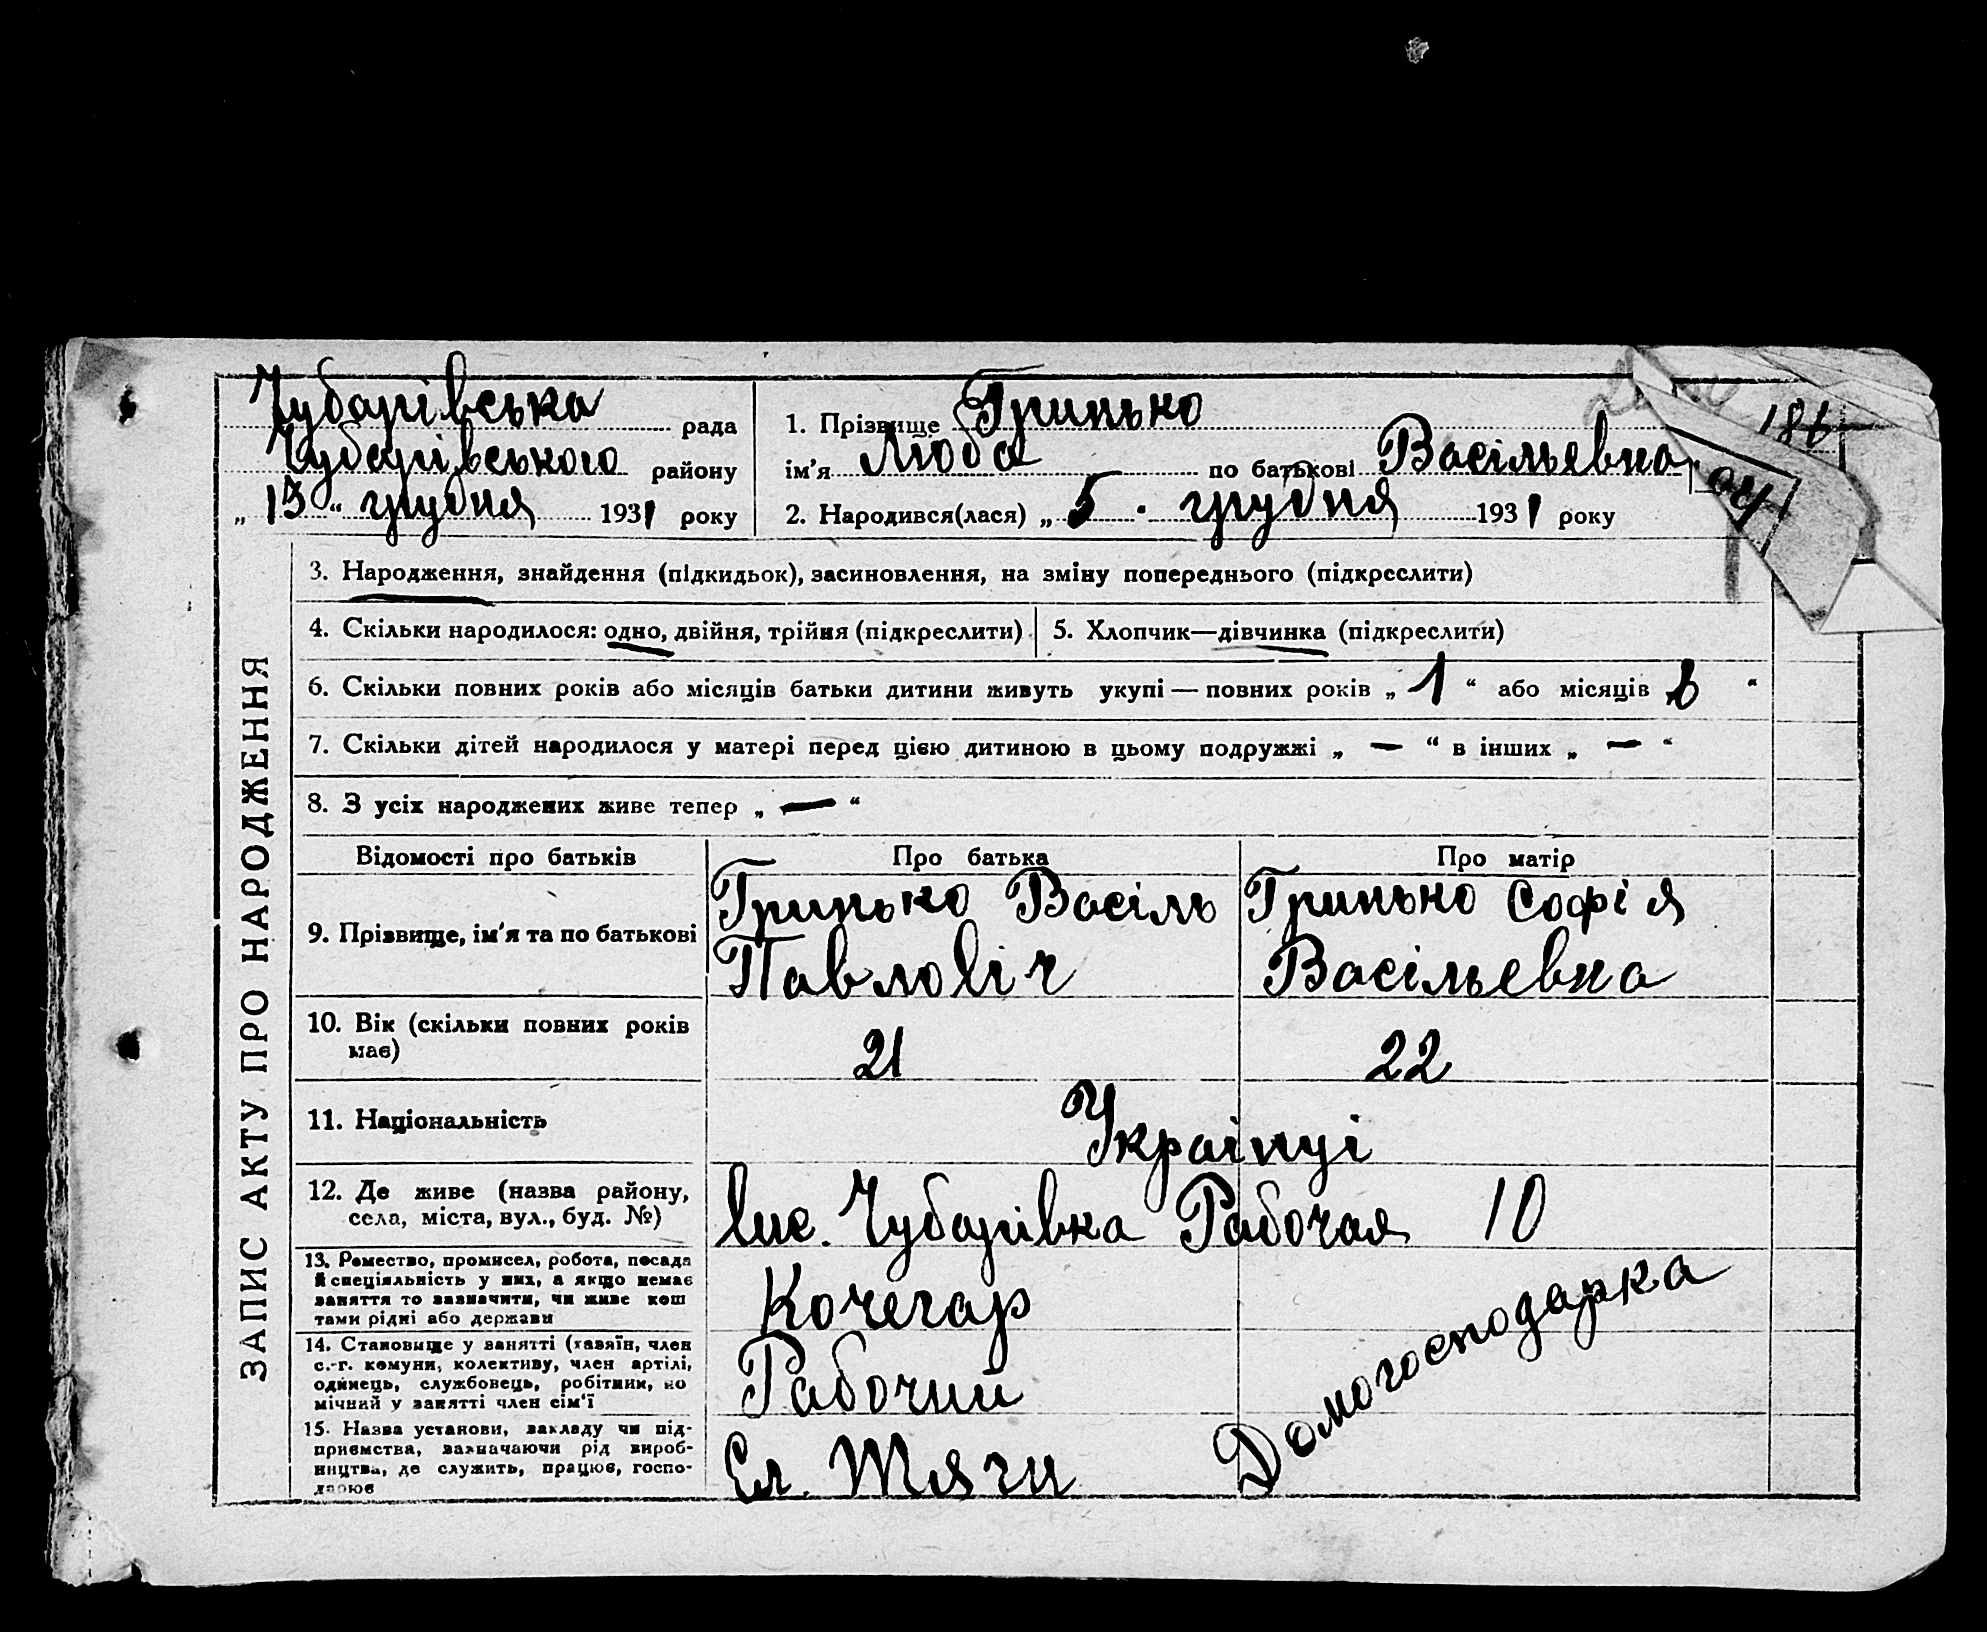 Чубарівська рада
Чубарівського району
„ 13 “ грудня 1931 року
1. Прізвище Грипько
ім’я Люба по батькові Васільевна
2. Народився(лася) „ 5 . грудня 1931 року
186
ЗАПИС АКТУ ПРО НАРОДЖЕННЯ
3. Народження, знайдення (підкидьок), засиновлення, на зміну попереднього (підкреслити)
4. Скільки народилося: одно, двійня, трійня (підкреслити)
5. Хлопчик—дівчинка (підкреслити)
6. Скільки повних років або місяців батьки дитини живуть укупі — повних років „ 1 “ або місяців “
7. Скільки дітей народилося у матері перед цією дитиною в цьому подружжі „ — “ в інших „ — “
8. З усіх народжених живе тепер „ — “
Відомості про батьків Про батька Про матір
9. Прізвище, ім’я та по батькові
Грипько Васіль
Павловіч
Грипько Софія
Васільевна
10. Вік (скільки повних років
має)
21 22
11. Національність Українці
12. Де живе (назва району,
села, міста, вул., буд. №)
вис. Чубарівка Рабочая 10
13. Ремество, промисел, робота, посада
й спеціяльність у них, а якщо немає
заняття то зазначити, чи живе кош
тами рідні або держави
Кочегар
Домогосподарка
14. Становище у занятті (хазяїн, член
с.-г. комуни, колективу, член артілі,
одинець, службовець, робітник, по
мічний у занятті член сім’ї
Рабочий
15. Назва установи, закладу чи під-
приємства, зазначаючи рід вироб-
ництва, де служить, працює, госпо-
дарює
Сл. Тяги